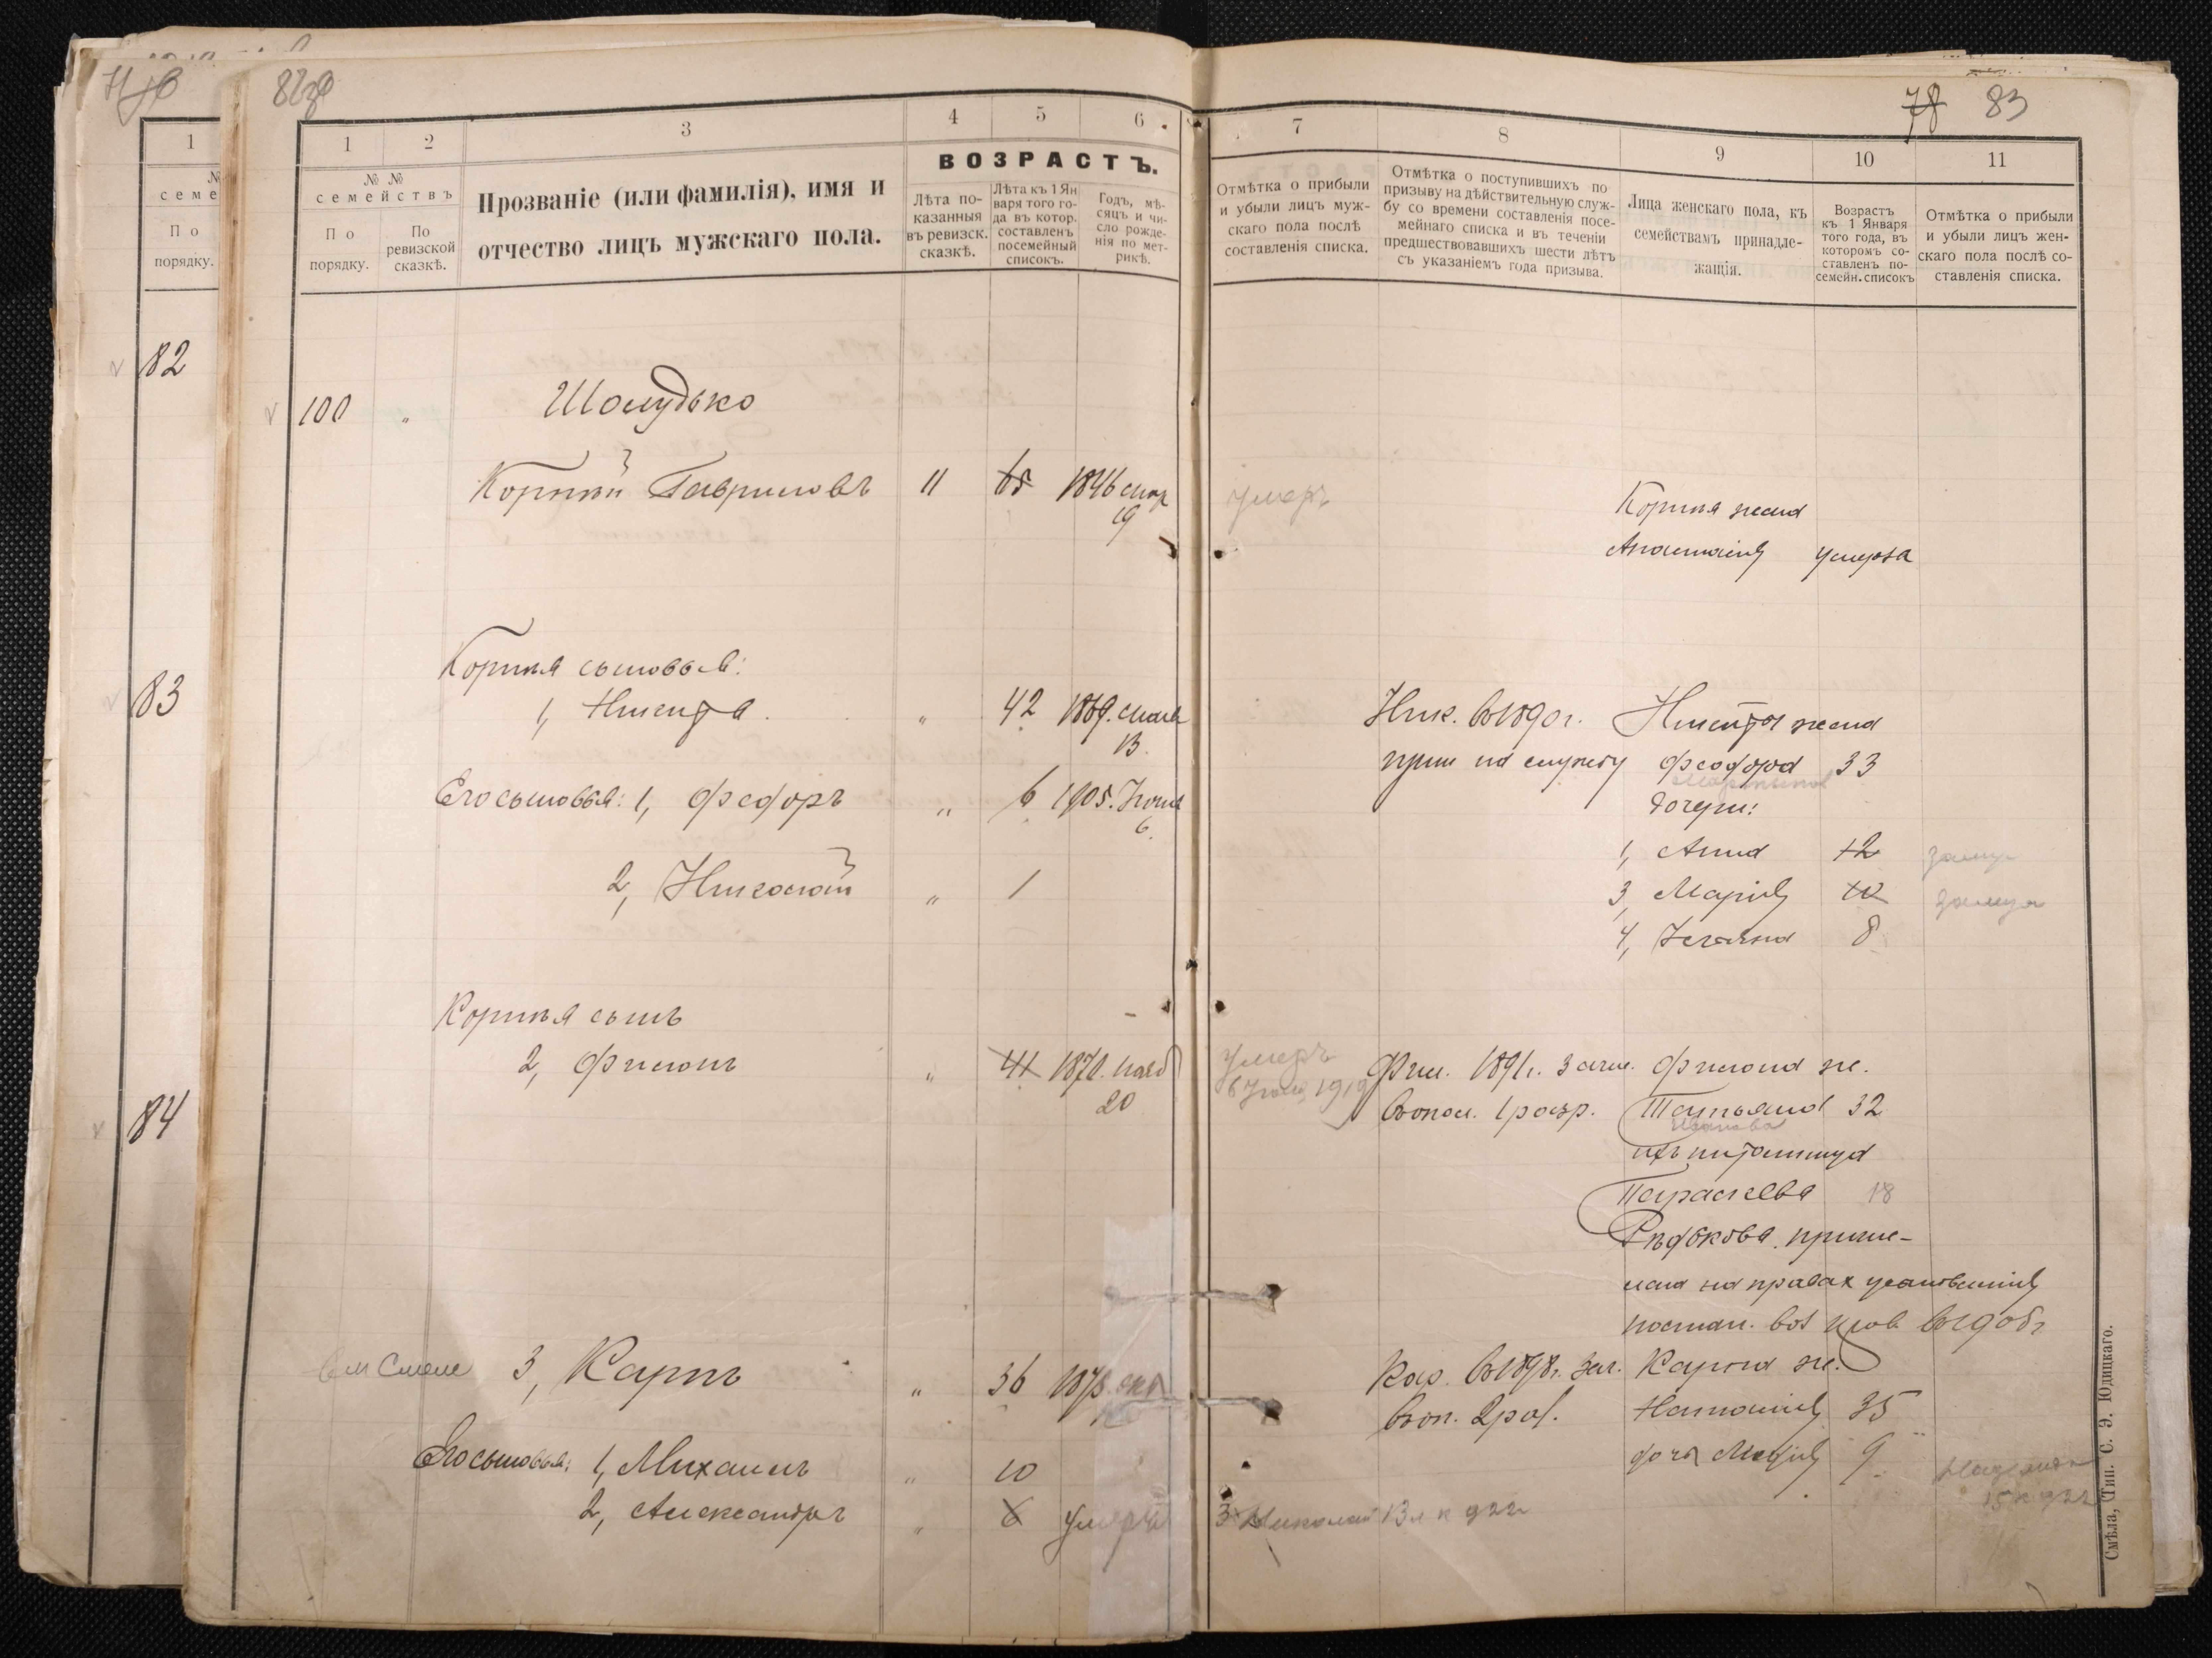 82
83
84
1
82
83
84
78 83
1 2 3 4 5 6
№ № семействъ
По порядку.
По ревизской сказкѣ.
Прозваніе (или фамилія), имя и отчество лицъ мужскаго пола.
ВОЗРАСТЪ.
Лѣта показанныя въ ревизск. сказкѣ.
Лѣта къ 1 Января того года въ котор. составленъ посемейный списокъ.
Годъ, мѣсяцъ и число рожденія по метрикѣ.
7 8 9 10 11
Отмѣтка о прибыли и убыли лицъ мужскаго пола послѣ составленія списка.
Отмѣтка о поступившихъ по призыву на дѣйствительную службу со времени составленія посемейнаго списка и въ теченіи предшествовавшихъ шести лѣтъ съ указаніемъ года призыва.
Лица женскаго пола, къ семействамъ принадлежащія.
Возрастъ къ 1 Января того года, въ которомъ составленъ посемейн. списокъ
Отмѣтка о прибыли и убыли лицъ женскаго пола послѣ составленія списка.
100 " Шолудько
Корнѣй Гавриловъ 11 65 1846 19
умеръ
Корнѣя жена
Анастасія умерла
Корнѣя сыновья:
1, Никита " 42 1869. 13.
Ник. въ 1890 г. Никиты жена
прин на службу Феодора 33
дочери:
Его сыновья: 1, Феодоръ " 6 1905. Іюня 6.
1, Анна 12
2, Николай " 1
3, Марія 10
4, 8
Корнѣя сынъ
2, Филонъ " 41 1870. нояб 20
умеръ
6 1919
Фил. 1891 г. зачис. Филона ж.
въ опол. 1 разр. Татьяна 32
Иванова
ихъ питомица
Параскева 18
Рѣдькова, приня-
на правах
постан. въ 190
3, Карпъ " 36 187
Кар. въ 1898 г. зач. Карпа ж.
въ оп. 2 раз. Наталія 35
Его сыновья: 1, Михаилъ " 10
дочь Марія 9
2, Александръ " 6 умеръ
3 Николай 13 л к 922
Смѣла, Тип. С. Э. Юдицкаго.